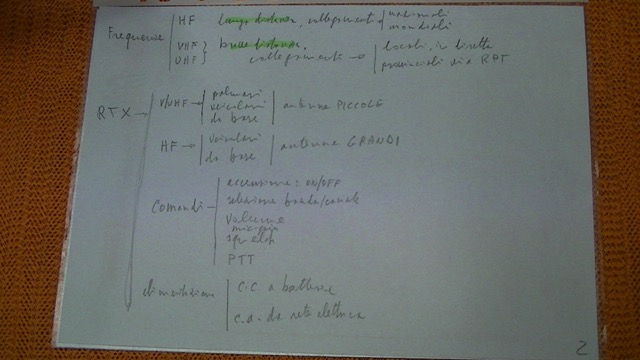 Frequenze
HF lunga distanza, collegamenti nazionali
mondiali
VHF breve distanza,
UHF collegamenti → locali, in diretta
provinciali via RPT
RTX → V/UHF → palmari
veicolari
da base
antenne PICCOLE
HF → veicolari
da base
antenne GRANDI
Comandi → accensione: ON/OFF
selezione banda/canale
Volume
mic gain
squelch
PTT
alimentazione
c.c. a batterie
c.a. da rete elettrica
2